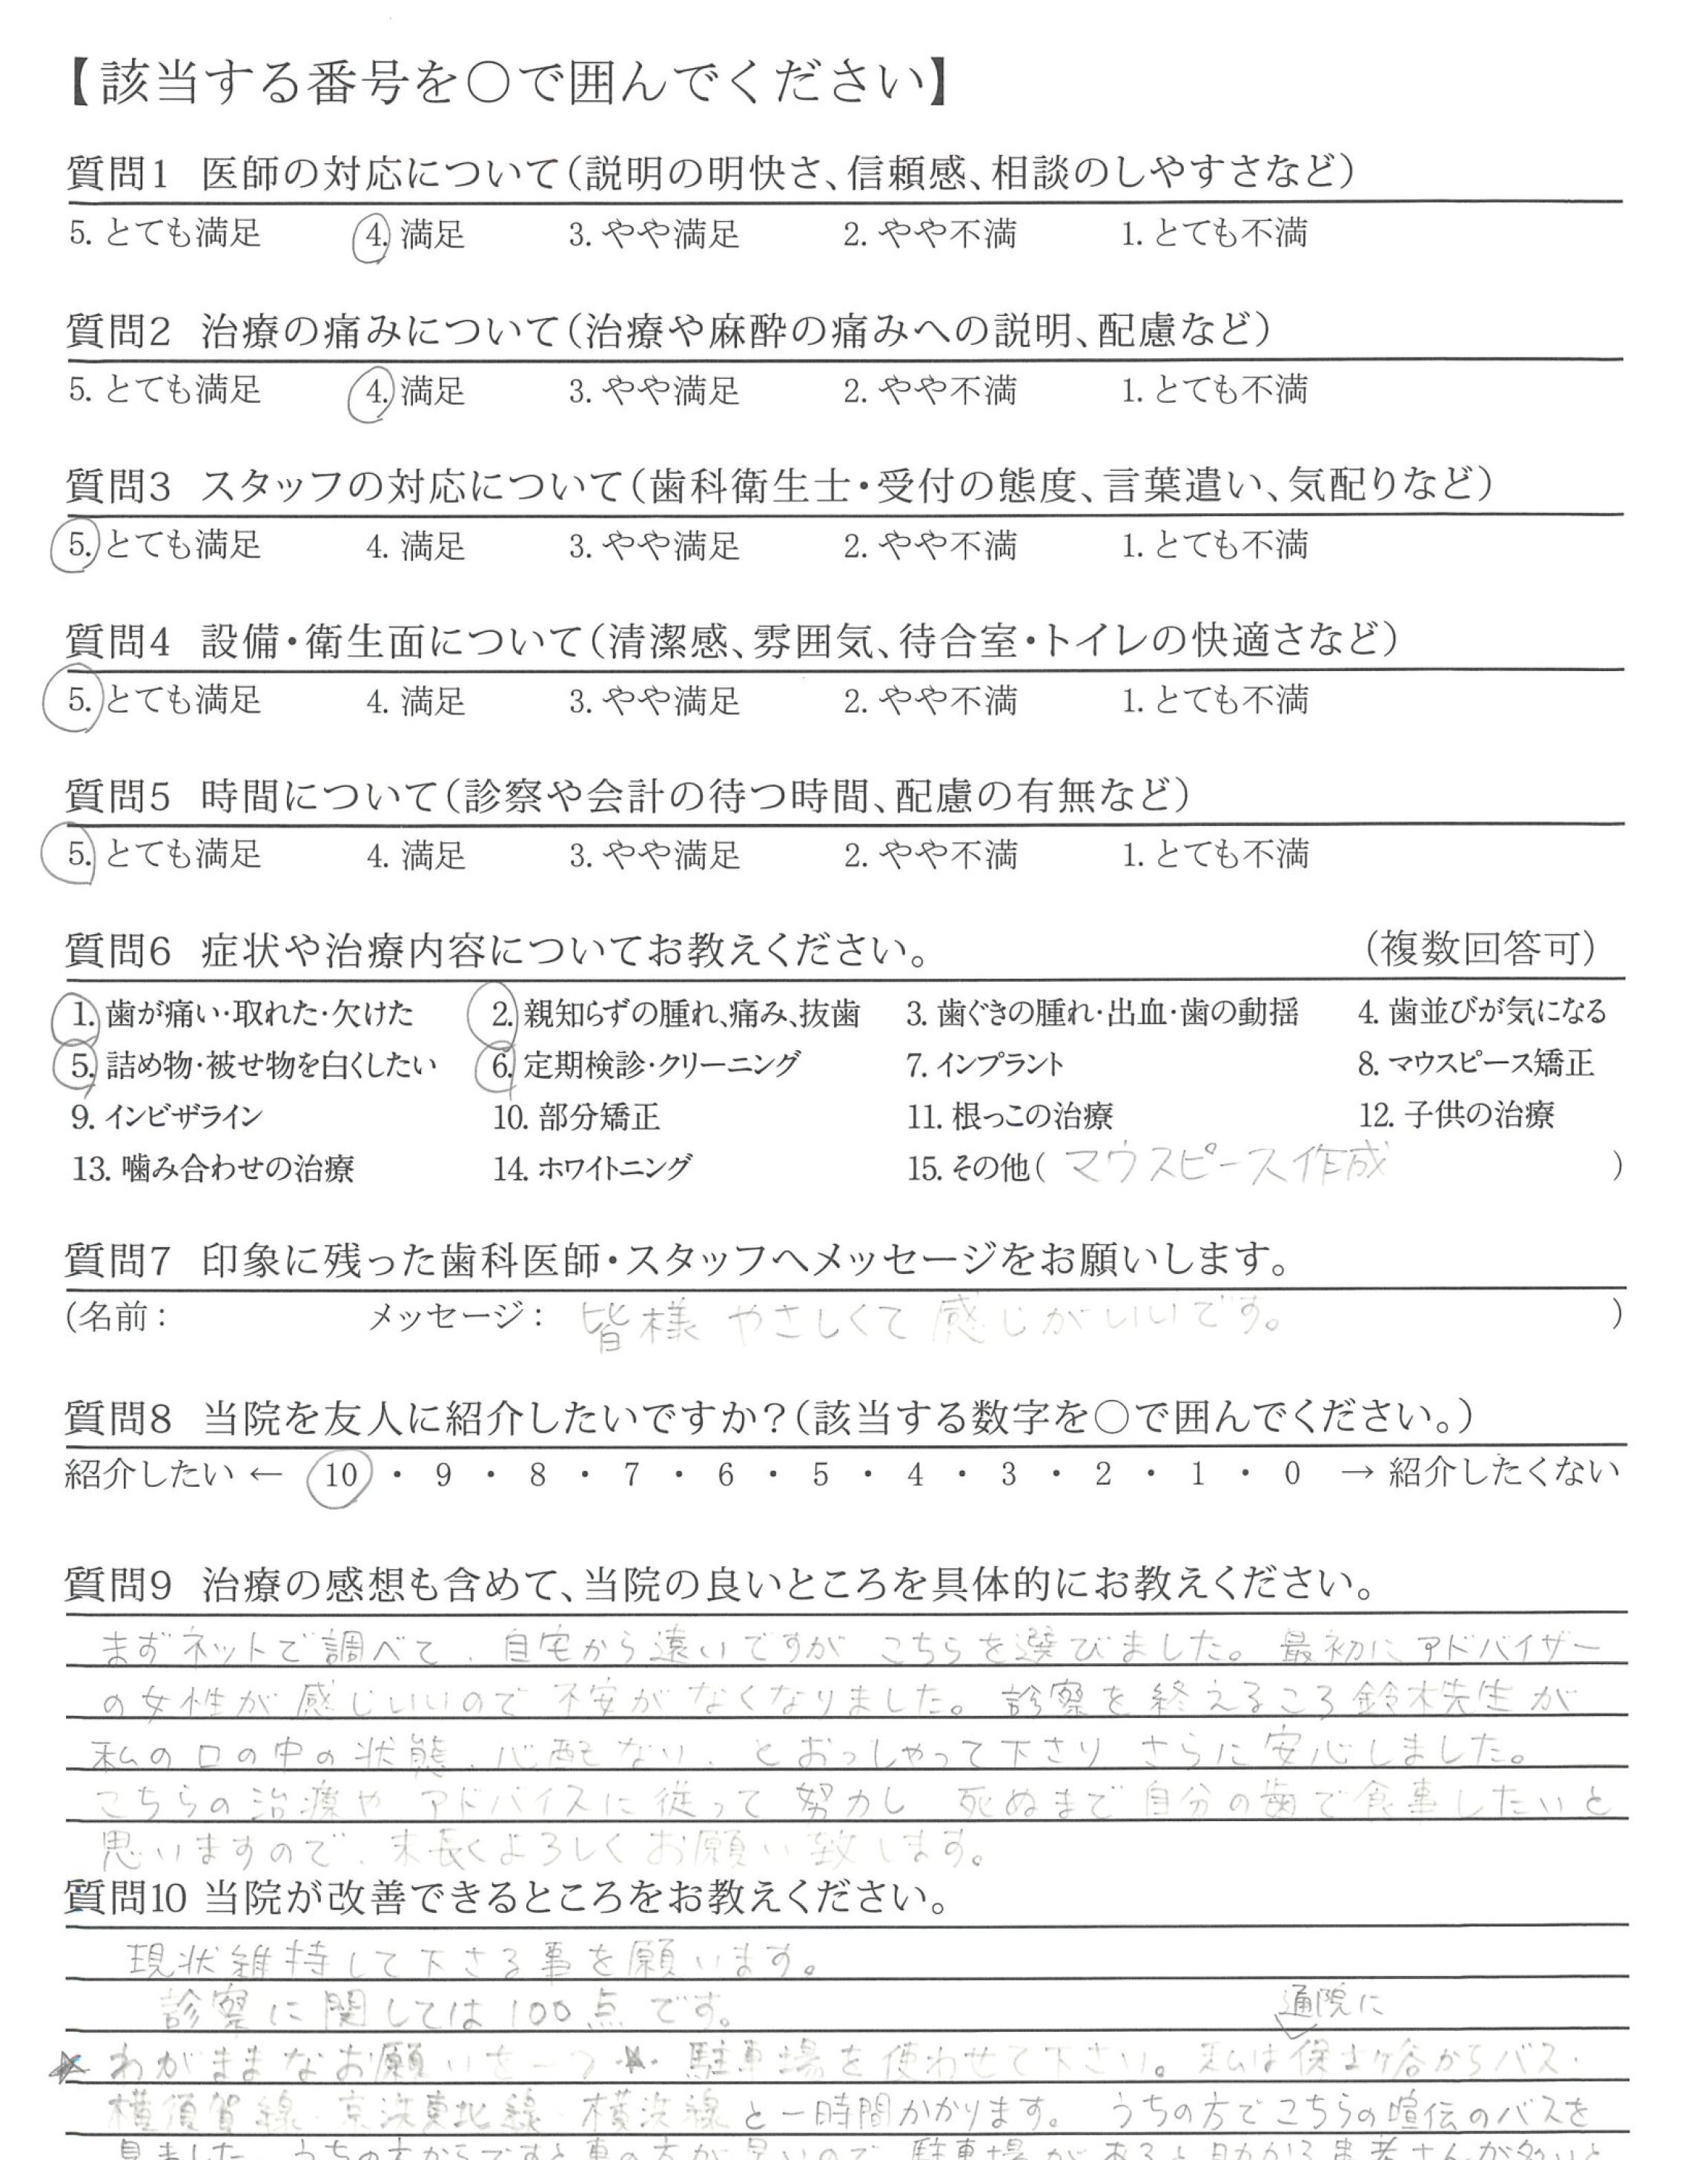 【該当する番号を○で囲んでください】
質問1 医師の対応について（説明の明快さ、信頼感、相談のしやすさなど）
5. とても満足 4. 満足 3. やや満足 2. やや不満 1. とても不満
質問2 治療の痛みについて（治療や麻酔の痛みへの説明、配慮など）
5. とても満足 4. 満足 3. やや満足 2. やや不満 1. とても不満
質問3 スタッフの対応について（歯科衛生士・受付の態度、言葉遣い、気配りなど）
5. とても満足 4. 満足 3. やや満足 2. やや不満 1. とても不満
質問4 設備・衛生面について（清潔感、雰囲気、待合室・トイレの快適さなど）
5. とても満足 4. 満足 3. やや満足 2. やや不満 1. とても不満
質問5 時間について（診察や会計の待つ時間、配慮の有無など）
5. とても満足 4. 満足 3. やや満足 2. やや不満 1. とても不満
質問6 症状や治療内容についてお教えください。 （複数回答可）
1. 歯が痛い・取れた・欠けた 2. 親知らずの腫れ、痛み、抜歯 3. 歯ぐきの腫れ・出血・歯の動揺 4. 歯並びが気になる
5. 詰め物・被せ物を白くしたい 6. 定期検診・クリーニング 7. インプラント 8. マウスピース矯正
9. インビザライン 10. 部分矯正 11. 根っこの治療 12. 子供の治療
13. 噛み合わせの治療 14. ホワイトニング 15. その他（ マウスピース作成 ）
質問7 印象に残った歯科医師・スタッフへメッセージをお願いします。
（名前： メッセージ： 皆様 やさしくて 感じがいいです。 ）
質問8 当院を友人に紹介したいですか？（該当する数字を○で囲んでください。）
紹介したい ← 10 ・ 9 ・ 8 ・ 7 ・ 6 ・ 5 ・ 4 ・ 3 ・ 2 ・ 1 ・ 0 → 紹介したくない
質問9 治療の感想も含めて、当院の良いところを具体的にお教えください。
まずネットで調べて、自宅から遠いですが こちらを選びました。最初に アドバイザー
の女性が 感じいいので 不安が なくなりました。診察を 終えるころ 鈴木先生が
私の口の中の状態、心配ない、とおっしゃって下さり さらに 安心しました。
こちらの治療や アドバイスに 従って 努力し 死ぬまで 自分の歯で食事したいと
思いますので、末長くよろしくお願い致します。
質問10 当院が改善できるところをお教えください。
現状維持して下さる事を願います。
診察に関しては100点です。
通院に
★ わがままなお願いを一つ ★・駐車場を使わせて下さい。私は保土ヶ谷からバス・
横須賀線・京浜東北線・横浜線と一時間かかります。 うちの方でこちらの喧伝のバスを
見ました。うちの方からですと車の方が早いので、駐車場があると助かる患者さんが多いと